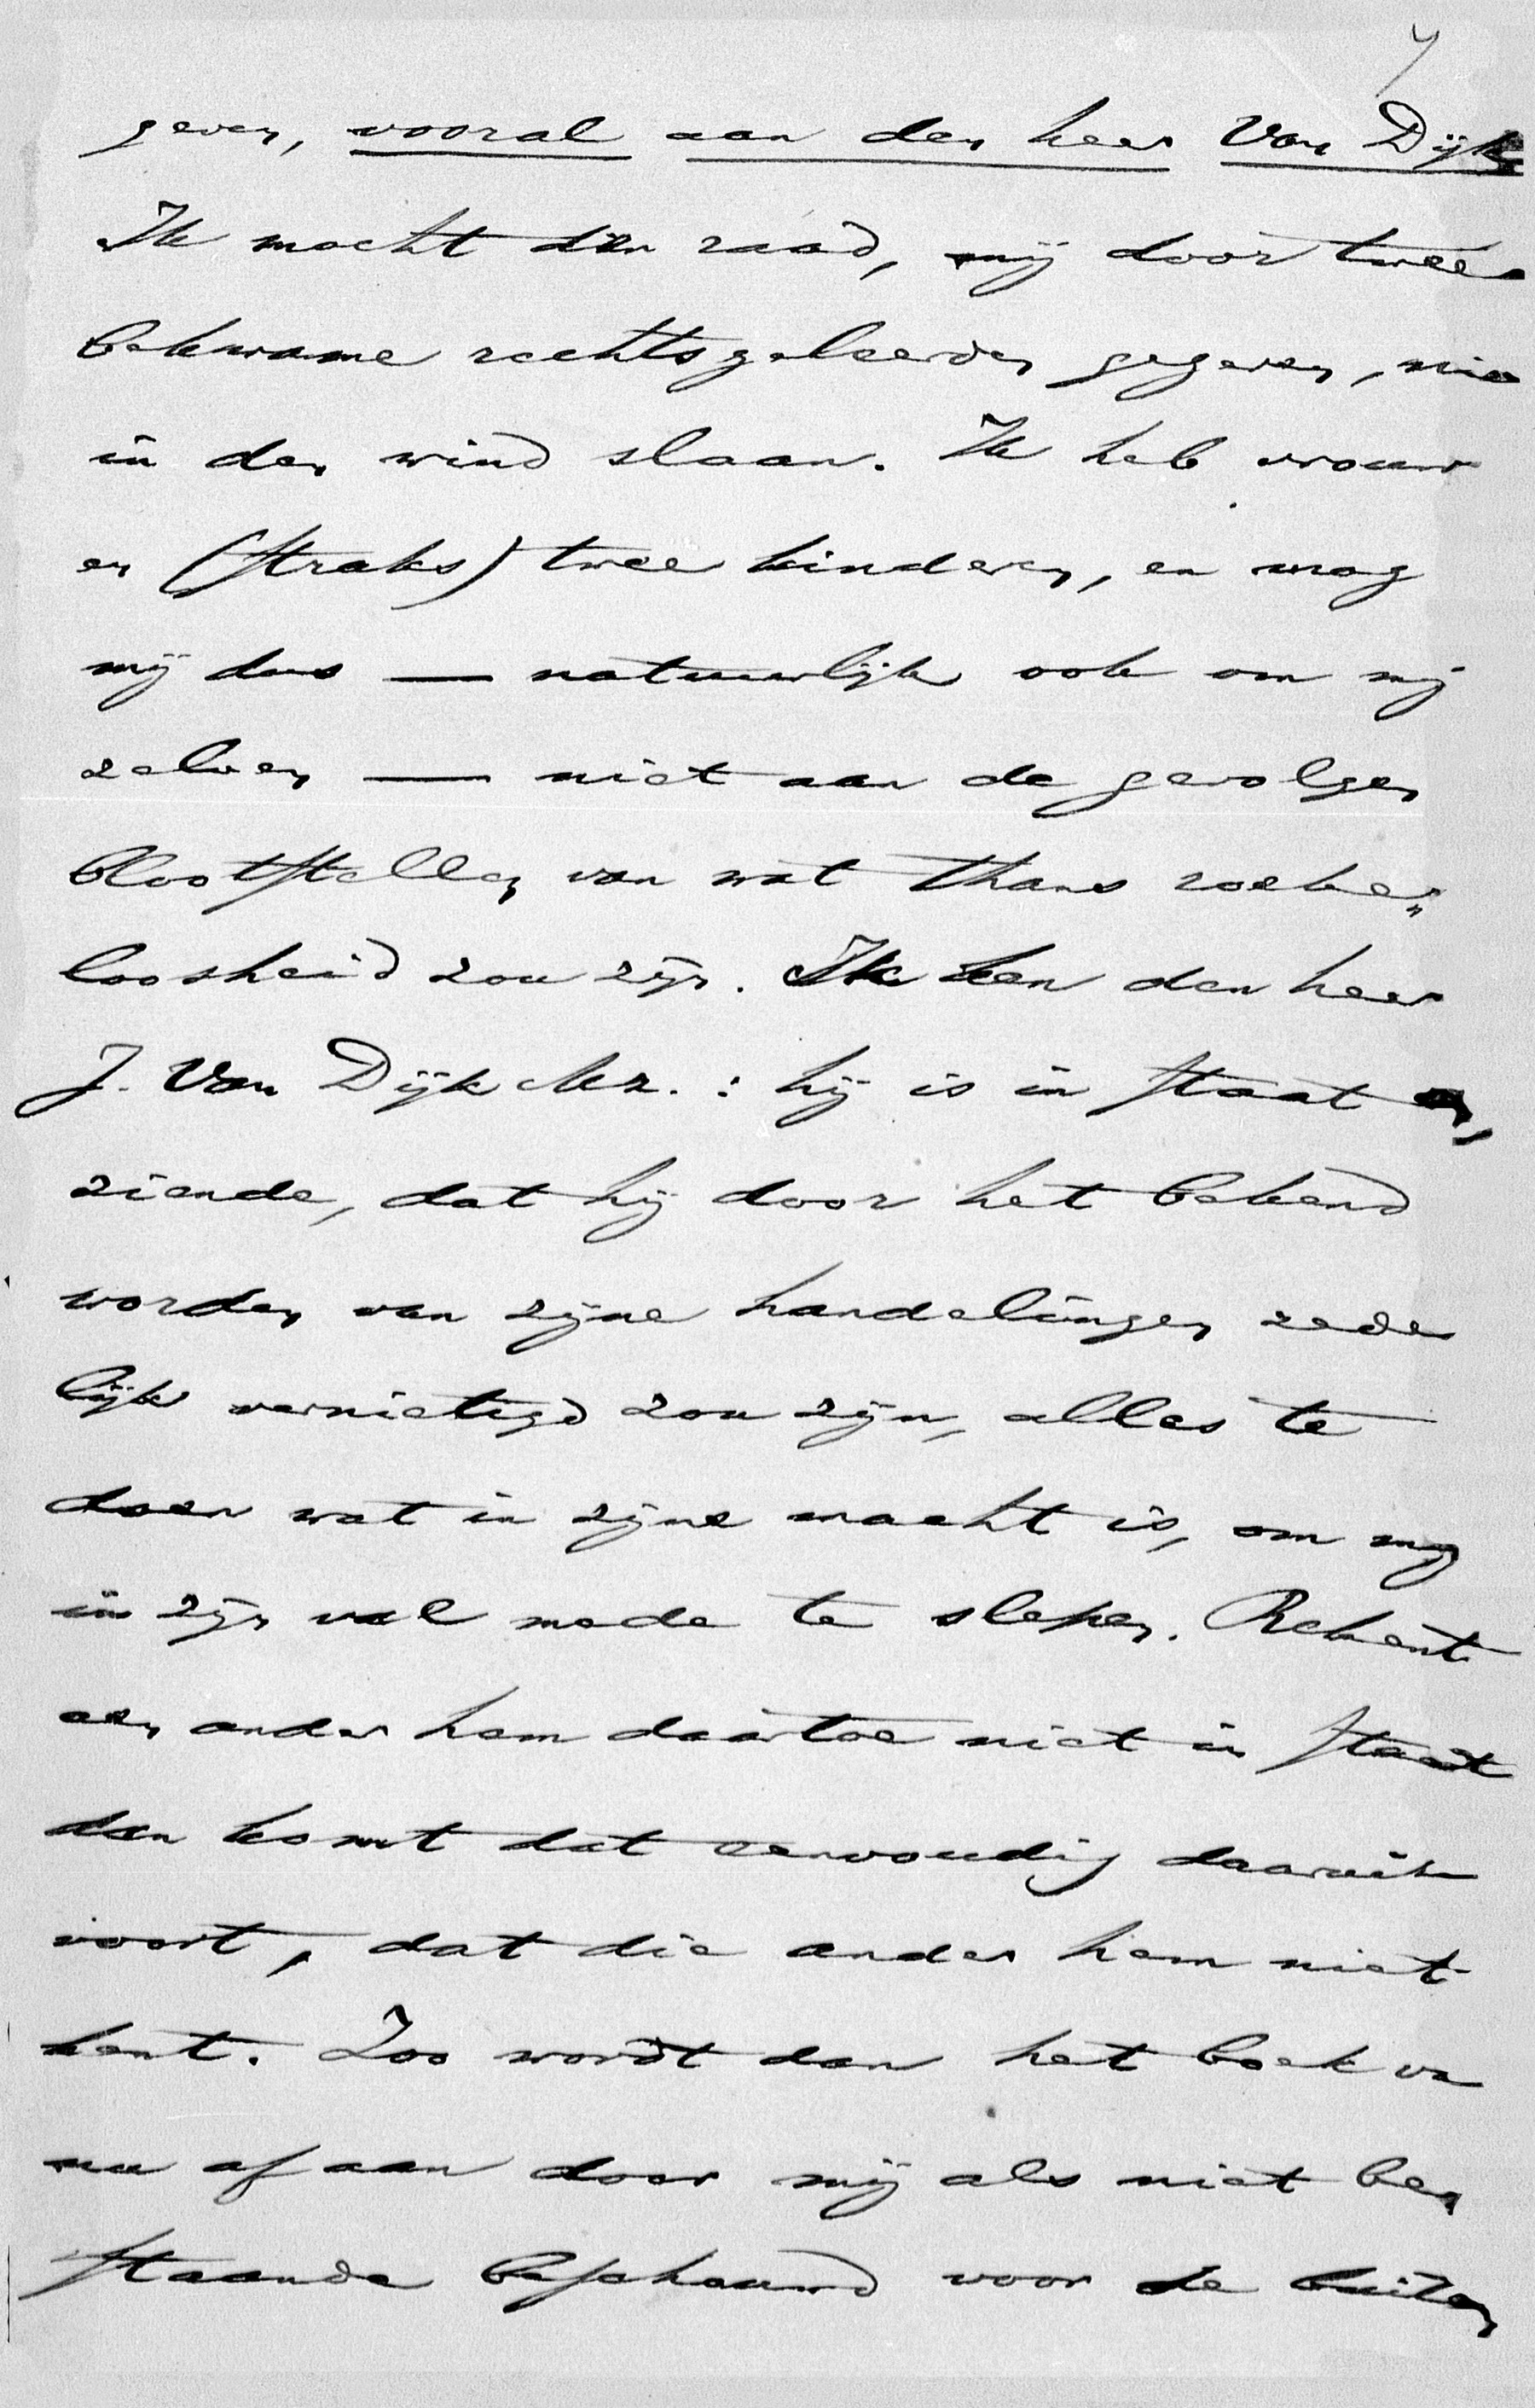 7
geven, vooral aan den heer Van Dijk
Ik mocht den raad, mij door twee
bekwame rechtsgeleerden gegeven, nie
in den wind slaan. Ik heb vrouw
en (straks) twee kinderen, en mag
mij dus — natuurlijk ook om mij
zelven — niet aan de gevolgen
blootstellen van wat thans roeke„
loosheid zou zijn. Ik ken den heer
J. Van Dijk Mz.: hij is in staat
ziende, dat hij door het bekend
worden van zijne handelingen zede
lijk vernietigd zou zijn, alles te
doen wat in zijne macht is, om mij
in zijn val mede te slepen. Rekent
een ander hem daartoe niet in staat
dan komt dat eenvoudig daaruit
voort, dat die ander hem niet
kent. Zoo wordt dan het boek va
nu af aan door mij als niet be„
staande beschouwd voor de buiten